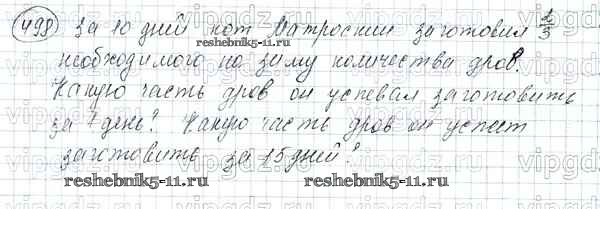 498) За 10 дней кот Матроскин заготовил 1/3
необходимого на зиму количества дров.
Какую часть дров он успевал заготовить
за 1 день? Какую часть дров он успеет
заготовить за 15 дней?
reshebnik5-11.ru
reshebnik5-11.ru
reshebnik5-11.ru
vipgdz.com